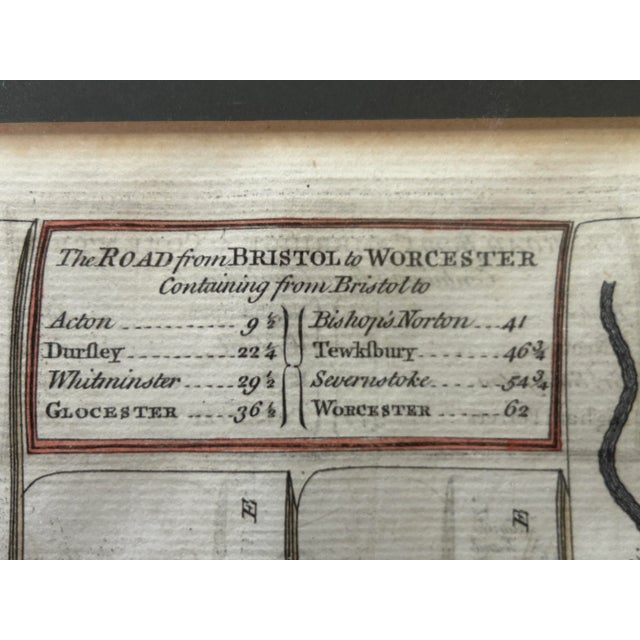 The ROAD from BRISTOL to WORCESTER
Containing from Bristol to
Acton 9 ½
Durſley 22 ¼
Whitminster 29 ½
GLOCESTER 36 ½
Bishop's Norton 41
Tewkſbury 46 ¾
Severnstoke 54 ¾
WORCESTER 62
E
E